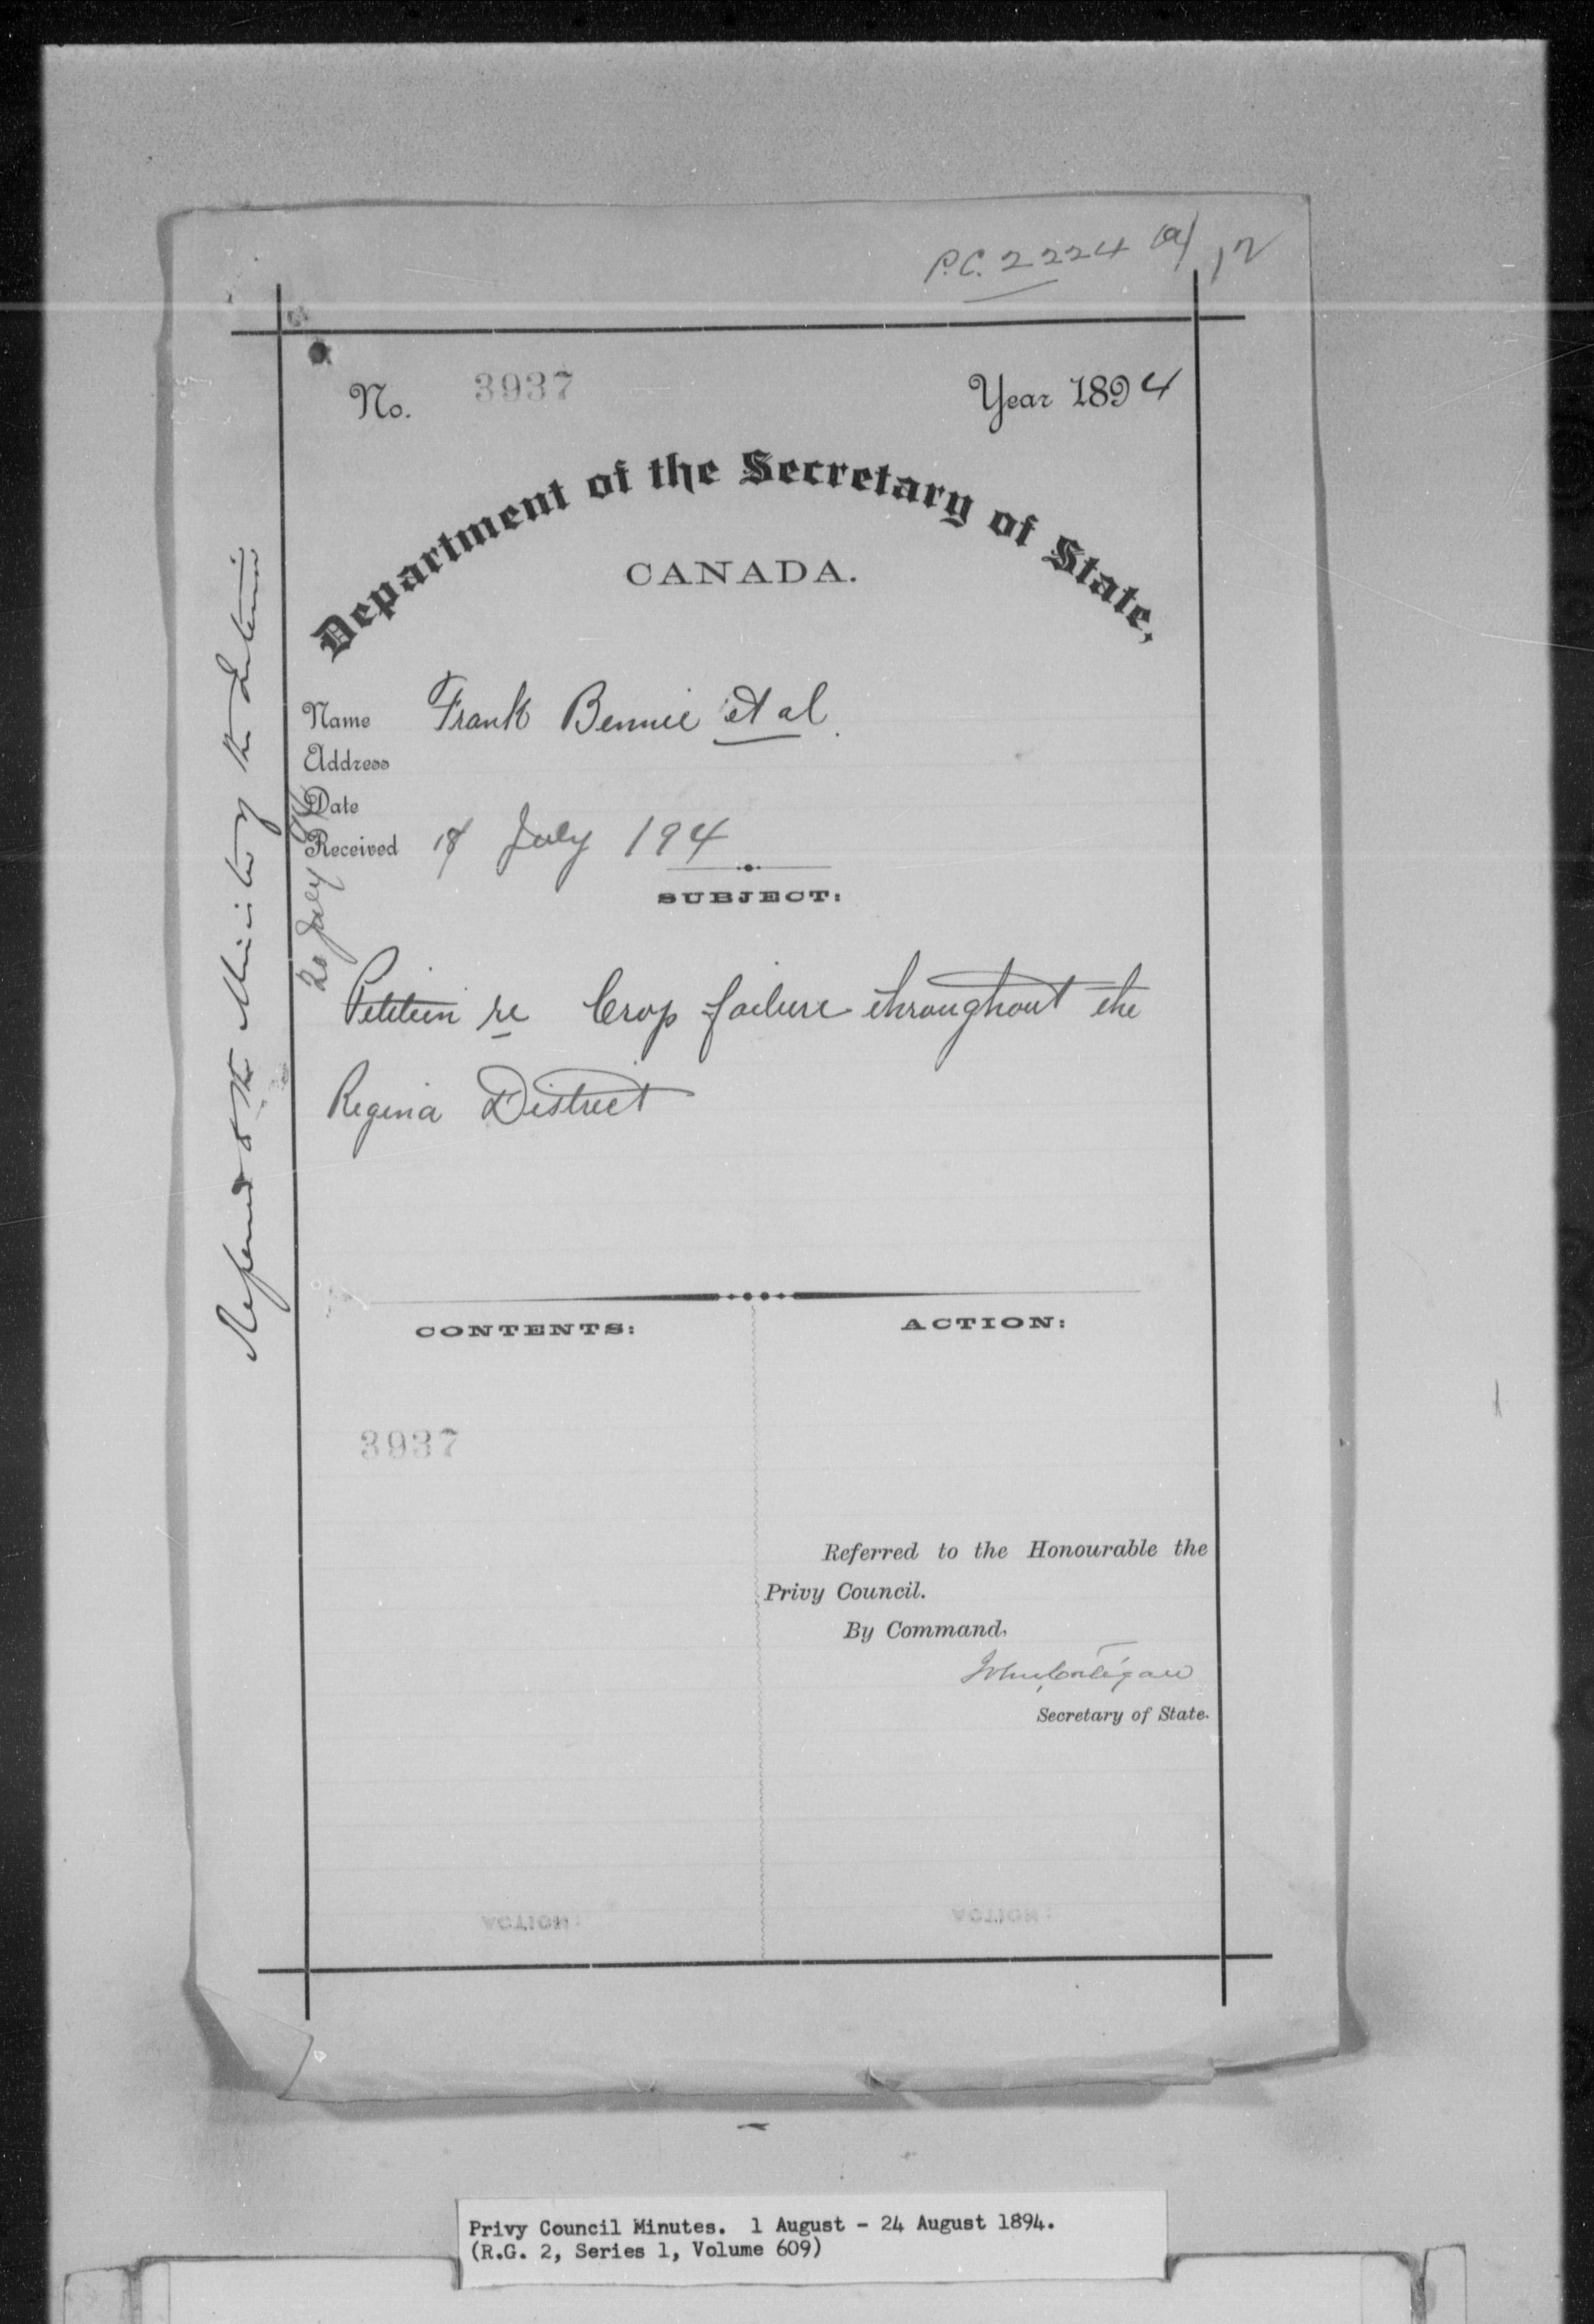 P.C. 2224 (a) 12
No. 3937 Year 1894
Department of the Secretary of State,
CANADA.
Name Frank Bennie et al.
Address
Date
Received 18 July 194
SUBJECT:
Petition re Crop failure throughout the
Regina District
Referred to the Minister of the Interior
20 July 94
CONTENTS: ACTION:
3937
Referred to the Honourable the
Privy Council.
By Command,
John Costigan
Secretary of State.
ACTION: ACTION:
Privy Council Minutes. 1 August - 24 August 1894.
(R.G. 2, Series 1, Volume 609)